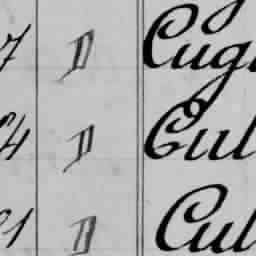 7 D Cug
64 D Cul
21 D Cul